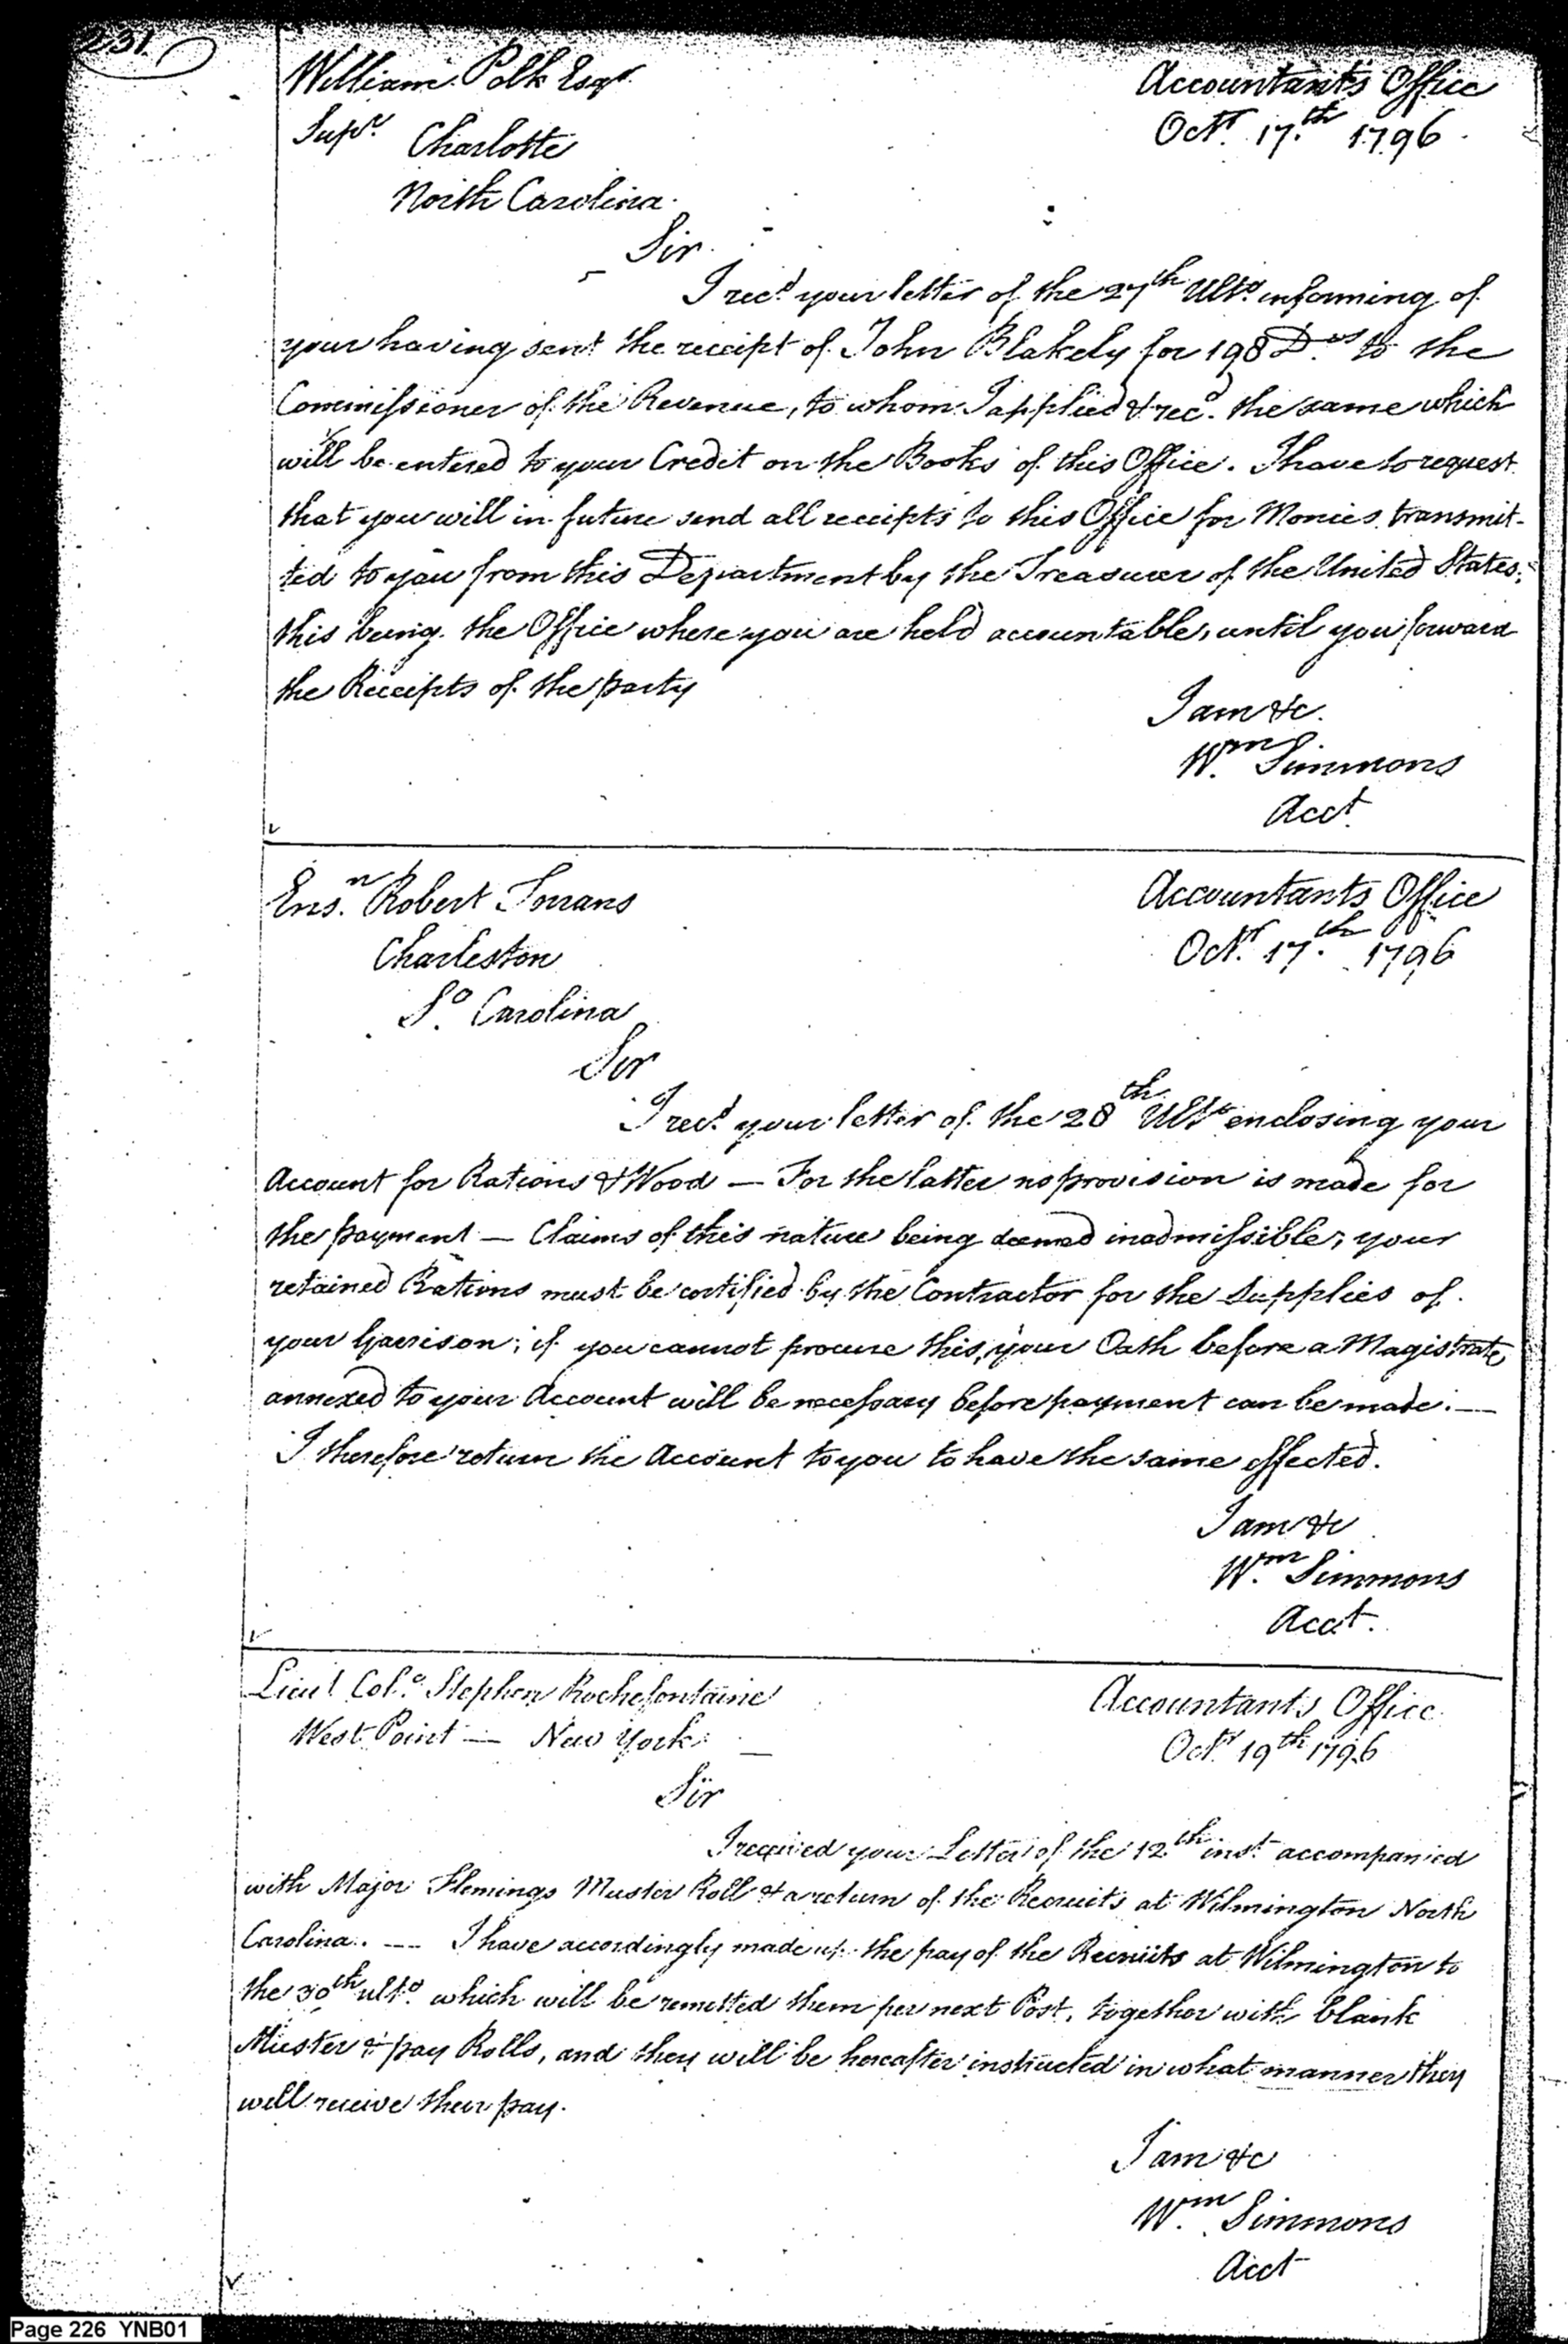 231
William Polk Esqr.
Supr. Charlotte
North Carolina.
Accountant's Office
Octr. 17th. 1796.
Sir.
I recd. your letter of the 27th Ulto. informing of
your having sent the receipt of John Blakely for 198 Ds. to the
Commissioner of the Revenue, to whom I applied & recd. the same which
will be entered to your Credit on the Books of this Office. I have to request
that you will in future send all receipts to this Office for Monies transmit-
ted to you from this Department by the Treasurer of the United States;
this being the Office where you are held accountable, until you forward
the Receipts of the party
I am &c.
Wm. Simmons
Acct.
Ensn. Robert Torrans
Charleston
So. Carolina
Accountants Office
Octr. 17th. 1796
Sir
I recd. your letter of the 28th Ulto. enclosing your
Account for Rations & Wood — For the latter no provision is made for
the payment — Claims of this nature being deemed inadmissible; your
retained Rations must be certified by the Contractor for the Supplies of
your Garrison; if you cannot procure this, your Oath before a Magistrate
annexed to your Account will be necessary before payment can be made. —
I therefore return the Account to you to have the same effected.
I am &c
Wm. Simmons
Acct.
Lieut Colo. Stephen Rochefontaine
West Point — New York. —
Accountants Office
Octr. 19th 1796
Sir
I received your Letter of the 12th inst. accompanied
with Major Flemings Muster Roll & a return of the Recruits at Wilmington North
Carolina. — I have accordingly made up the pay of the Recruits at Wilmington to
the 30th ulto. which will be remitted them per next Post, together with blank
Muster & pay Rolls, and they will be hereafter instructed in what manner they
will receive their pay.
I am &c
Wm. Simmons
Acct
Page 226 YNB01